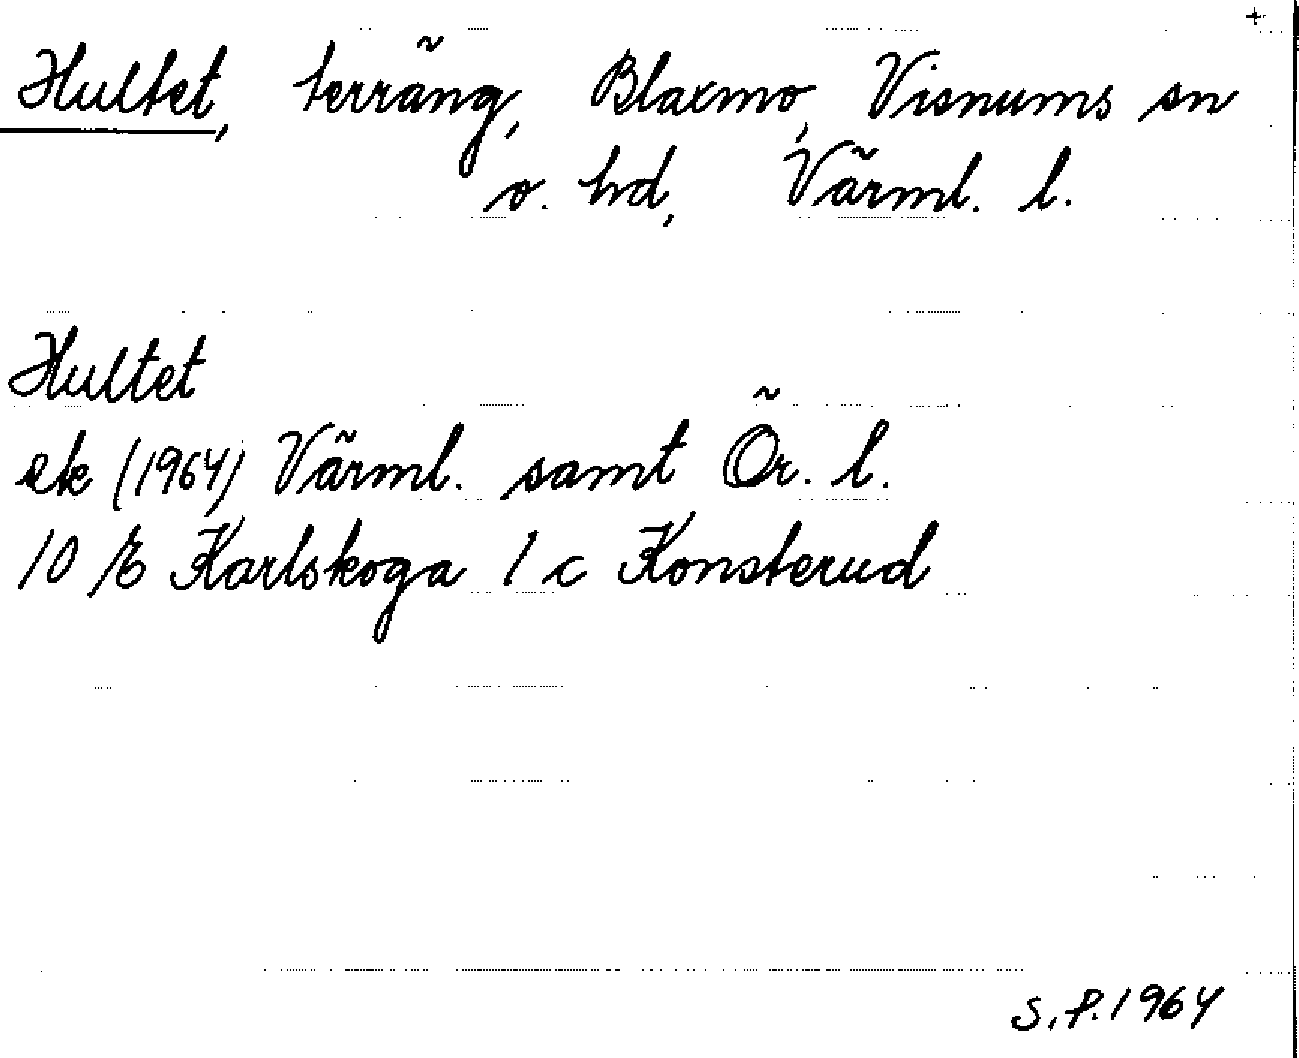 Hultet, terräng, Blaxmo, Visnums sn
o. hd, Värml. l.
Hultet
ek (1964) Värml. samt Ör. l.
10 E Karlskoga 1 c Konsterud
S.F. 1964